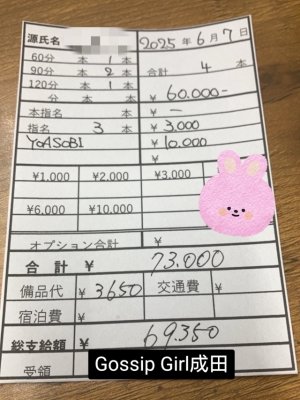 源氏名
2025年6月7日
60分 本 1 本
90分 本 2 本
合計 4 本
120分 本 1 本
分 本 本
¥ 60.000-
本指名 ¥ -
指名 3 本 ¥ 3,000
YOASOBI ¥ 10,000
¥
¥1,000 ¥2,000 ¥3,000
¥6,000 ¥10,000
オプション合計 ¥
合計 ¥ 73.000
備品代 ¥ 3650 交通費 ¥
宿泊費 ¥
総支給額 ¥ 69.350
Gossip Girl成田
受領